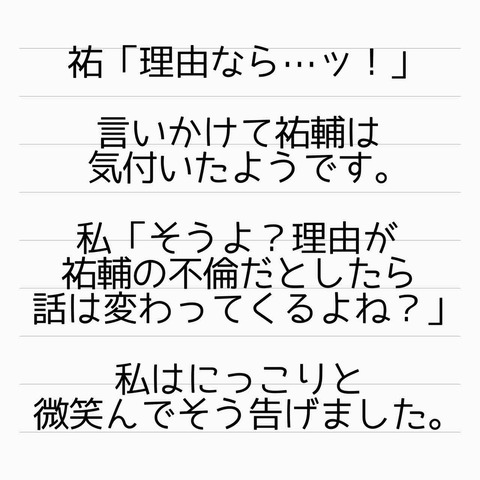 祐「理由なら…ッ！」
言いかけて祐輔は
気付いたようです。
私「そうよ？理由が
祐輔の不倫だとしたら
話は変わってくるよね？」
私はにっこりと
微笑んでそう告げました。